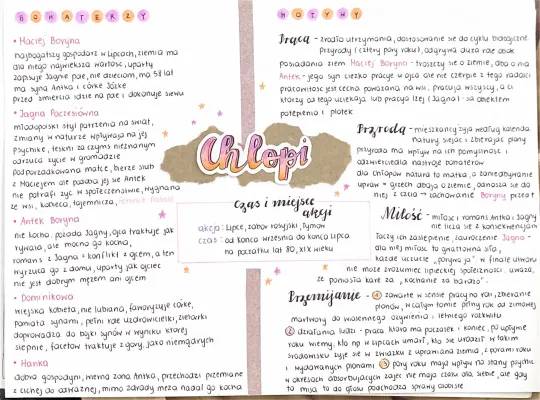 BOHATERZY
• Maciej Boryna
najbogatszy gospodarz w Lipcach, ziemia ma
dla niego największą wartość, uparty
zapisuje Jagnie pole, nie dzieciom, ma 58 lat
ma syna Antka i córkę Józkę
przed śmiercią idzie na pole i dokonuje siewu
• Jagna Paczesiówna
młodopolski styl patrzenia na świat,
zmiany w naturze wpływają na jej
psychikę, tęskni za czymś nieznanym
odrzuca życie w gromadzie
podporządkowana matce, bierze ślub
z Maciejem ale podoba jej się Antek
nie potrafi żyć w społeczeństwie, wygnana
ze wsi, kobieca, tajemnicza,
• Antek Boryna
nie kocha, pożąda Jagny, ojca traktuje jak
rywala, ale mocno go kocha,
romans z Jagną → konflikt z ojcem, a ten
wyrzuca go z domu, uparty jak ojciec
nie jest dobrym mężem ani ojcem
• Dominikowa
wiejska kobieta, nie lubiana, faworyzuje córkę,
pomiata synami, pełni rolę uzdrowicielki, zielarki
doprowadza do bójki synów w wyniku której
ślepnie, facetów traktuje z góry, jako niemądrych
• Hanka
dobra gospodyni, wierna żona Antka, przechodzi przemianę
z cichej do odważnej, mimo zdrady męża nadal go kocha
Chłopi
Czas i miejsce
akcji
akcja: Lipce, zabór rosyjski, Tymów
czas: od końca września do końca lipca
na początku lat 80, XIX wieku
MOTYWY
Praca - źródło utrzymania, dostosowanie się do cyklu biologicznego
Przyrody (cztery pory roku), odgrywa dużą rolę obok
posiadania ziemi Maciej Boryna - troszczy się o ziemię, dba o nią
Antek - jego syn ciężko pracuje w ojca ale nie czerpie z tego radości
pracowitość jest cechą poważaną na wsi, pracują wszyscy, a ci
którzy od tego uciekają lub pracują źle (Jagna) - są obiektem
potępienia i plotek
Przyroda - mieszkańcy żyją według kalendarza
natury siejąc i zbierając plony
przyroda ma wpływ na ich pomyślność i
odzwierciedla nastroje bohaterów
dla chłopów natura to matka, a zaniedbywanie
upraw = grzech dbają o ziemię, odnoszą się do
niej z czcią → zachowanie Boryny przed
Miłość - miłość i romans Antka i Jagny
nie liczą się z konsekwencjami
łączy ich zaślepienie, zauroczenie Jagna -
dla niej miłość to gwałtowna siła,
każde uczucie „porywa ją" w finale utworu
nie może zrozumieć lipieckiej społeczności, uważa,
że poniosła karę za „kochanie za bardzo".
Przemijanie - ① zawarte w sensie pracy na roli, zbieranie
plonów, w całym tomie pełny rok od zimowej
martwoty do wiosennego ożywienia i letniego rozkwitu
② działania ludzi - praca która ma początek i koniec, po upływie
roku wiemy, kto np w Lipcach umarł, kto się urodził w takim
środowisku żyje się w związku z uprawianą ziemią, z porami roku
i wydawanymi plonami ③ pory roku mają wpływ na stany psychiczne
w okresach absorbujących zajęć nie mają czasu dla siebie, ale gdy
to mija to do głosu podchodzą sprawy osobiste